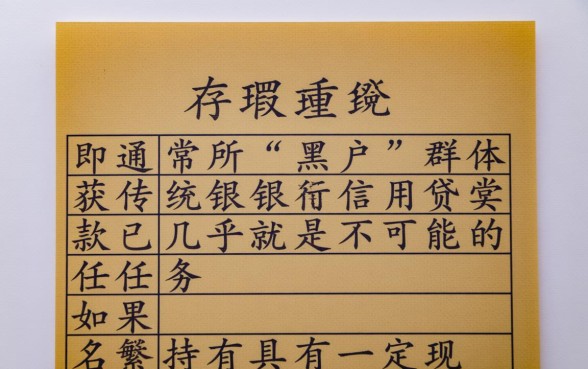 存瑕重
即通常所“黑户”群体
获传统银银行信用贷
款已几乎就是不可能的
任任务
如果
名繁持有具有一定现